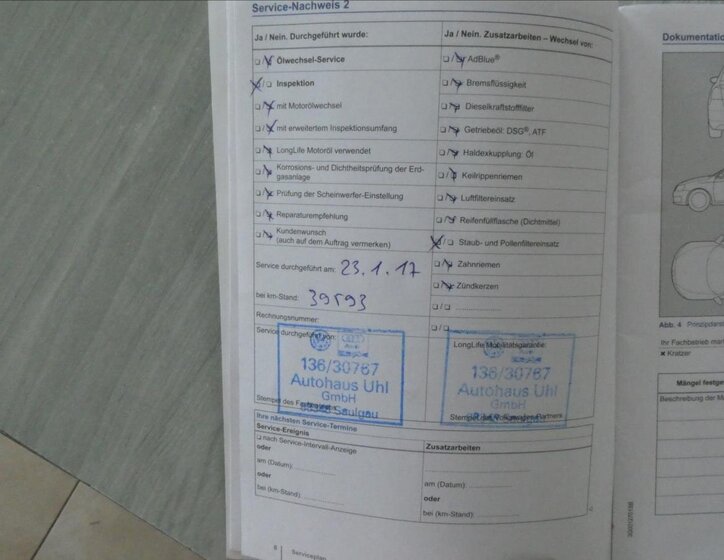 Service-Nachweis 2
Ja / Nein. Durchgeführt wurde:
Ölwechsel-Service
Inspektion
mit Motorölwechsel
mit erweitertem Inspektionsumfang
LongLife Motoröl verwendet
Korrosions- und Dichtheitsprüfung der Erd-
gasanlage
Prüfung der Scheinwerfer-Einstellung
Reparaturempfehlung
Kundenwunsch
(auch auf dem Auftrag vermerken)
Service durchgeführt am: 23.1.17
bei km-Stand: 39593
Rechnungsnummer:
Service durchgeführt von:
136/30767
Autohaus Uhl
GmbH
Saulgau
Stempel des
Ja / Nein. Zusatzarbeiten – Wechsel von:
AdBlue®
Bremsflüssigkeit
Dieselkraftstofffilter
Getriebeöl: DSG®, ATF
Haldexkupplung: Öl
Keilrippenriemen
Luftfiltereinsatz
Reifenfüllflasche (Dichtmittel)
Staub- und Pollenfiltereinsatz
Zahnriemen
Zündkerzen
LongLife Mobilitätsgarantie:
136/30767
Autohaus Uhl
GmbH
Stempel des Volkswagen Partners
Ihre nächsten Service-Termine
Service-Ereignis
nach Service-Intervall-Anzeige
oder
am (Datum):
oder
bei (km-Stand):
Zusatzarbeiten
am (Datum):
oder
bei (km-Stand):
8 | Serviceplan
Dokumentatio
Abb. 4 Prinzipdars
Ihr Fachbetrieb mar
× Kratzer
Mängel festge
Beschreibung der M